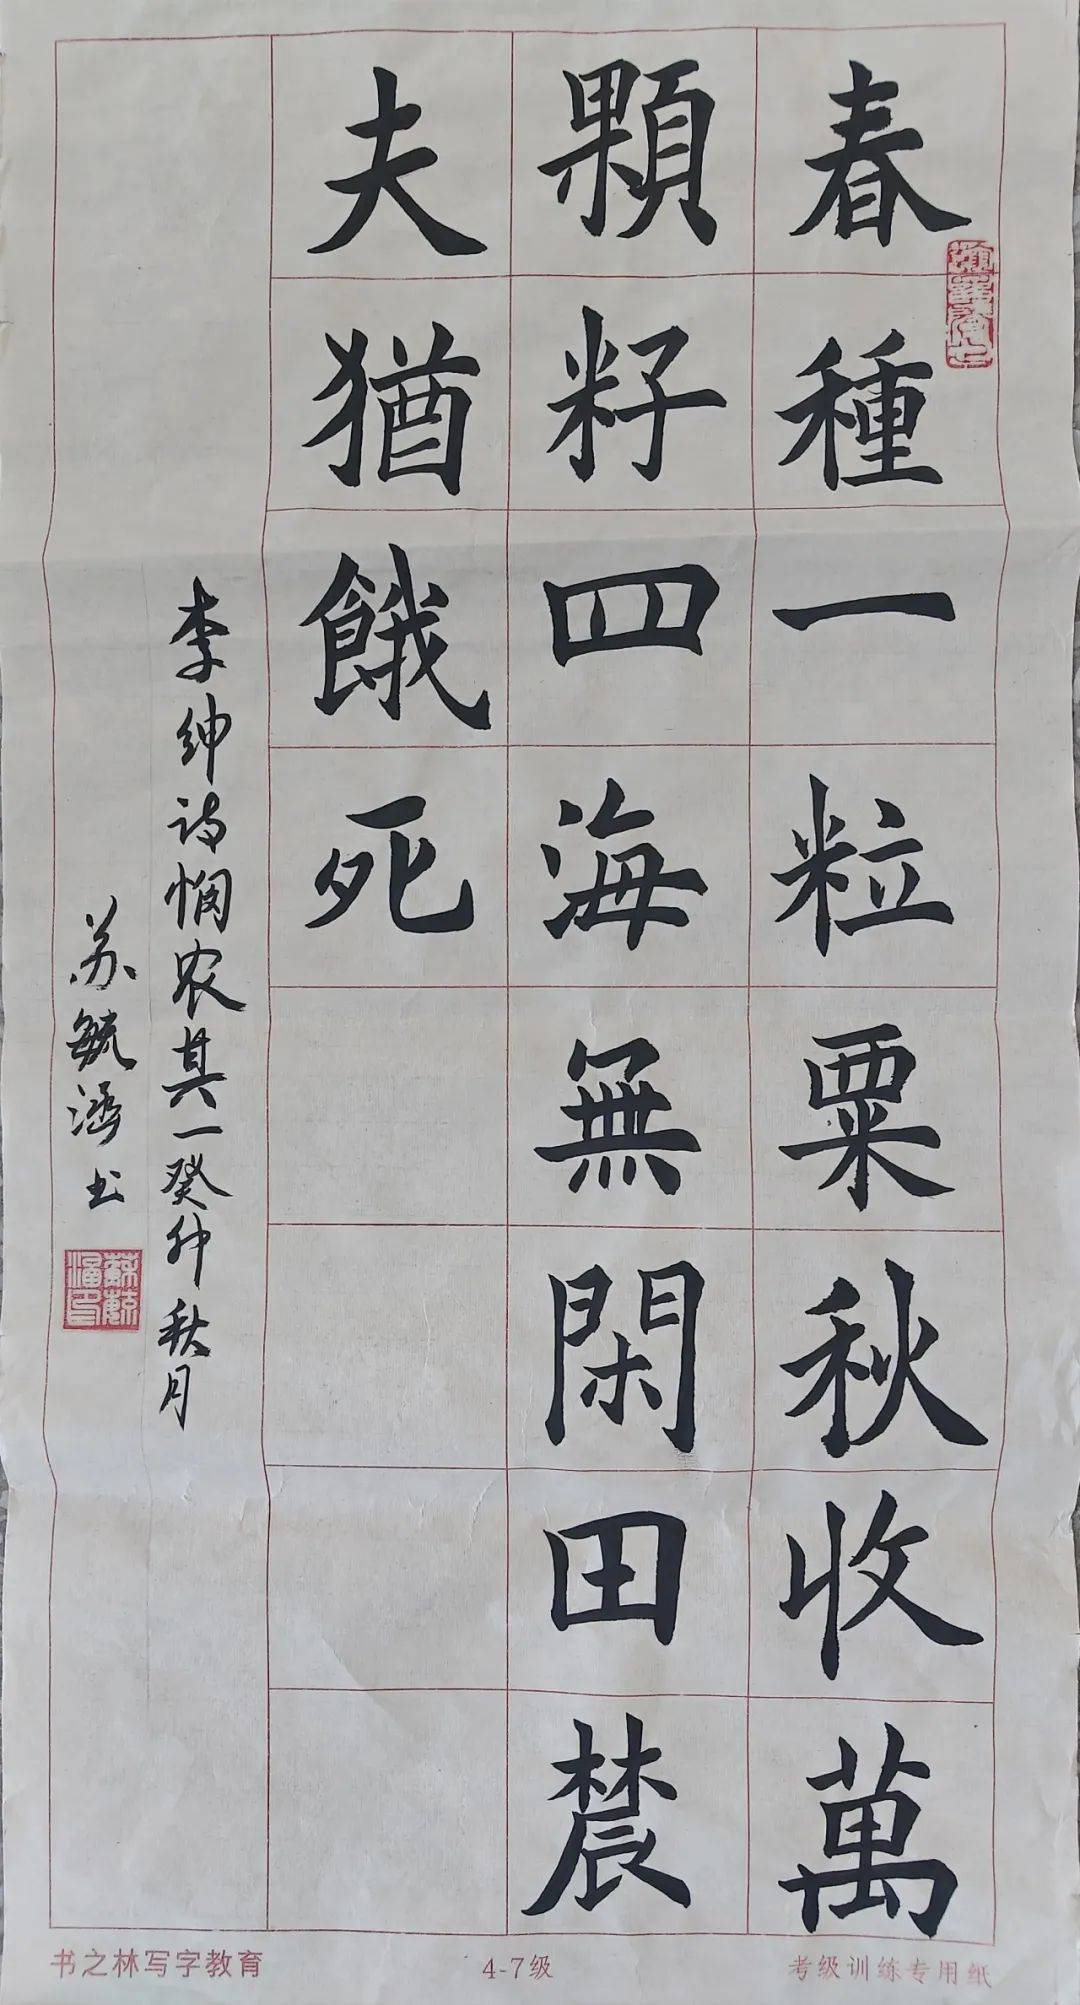 春種一粒粟秋收萬
顆籽四海無閑田辳
夫猶餓死
李绅诗悯农其一癸卯秋月
苏毓涵书
蘇毓涵印
书之林写字教育
4-7级
考级训练专用纸